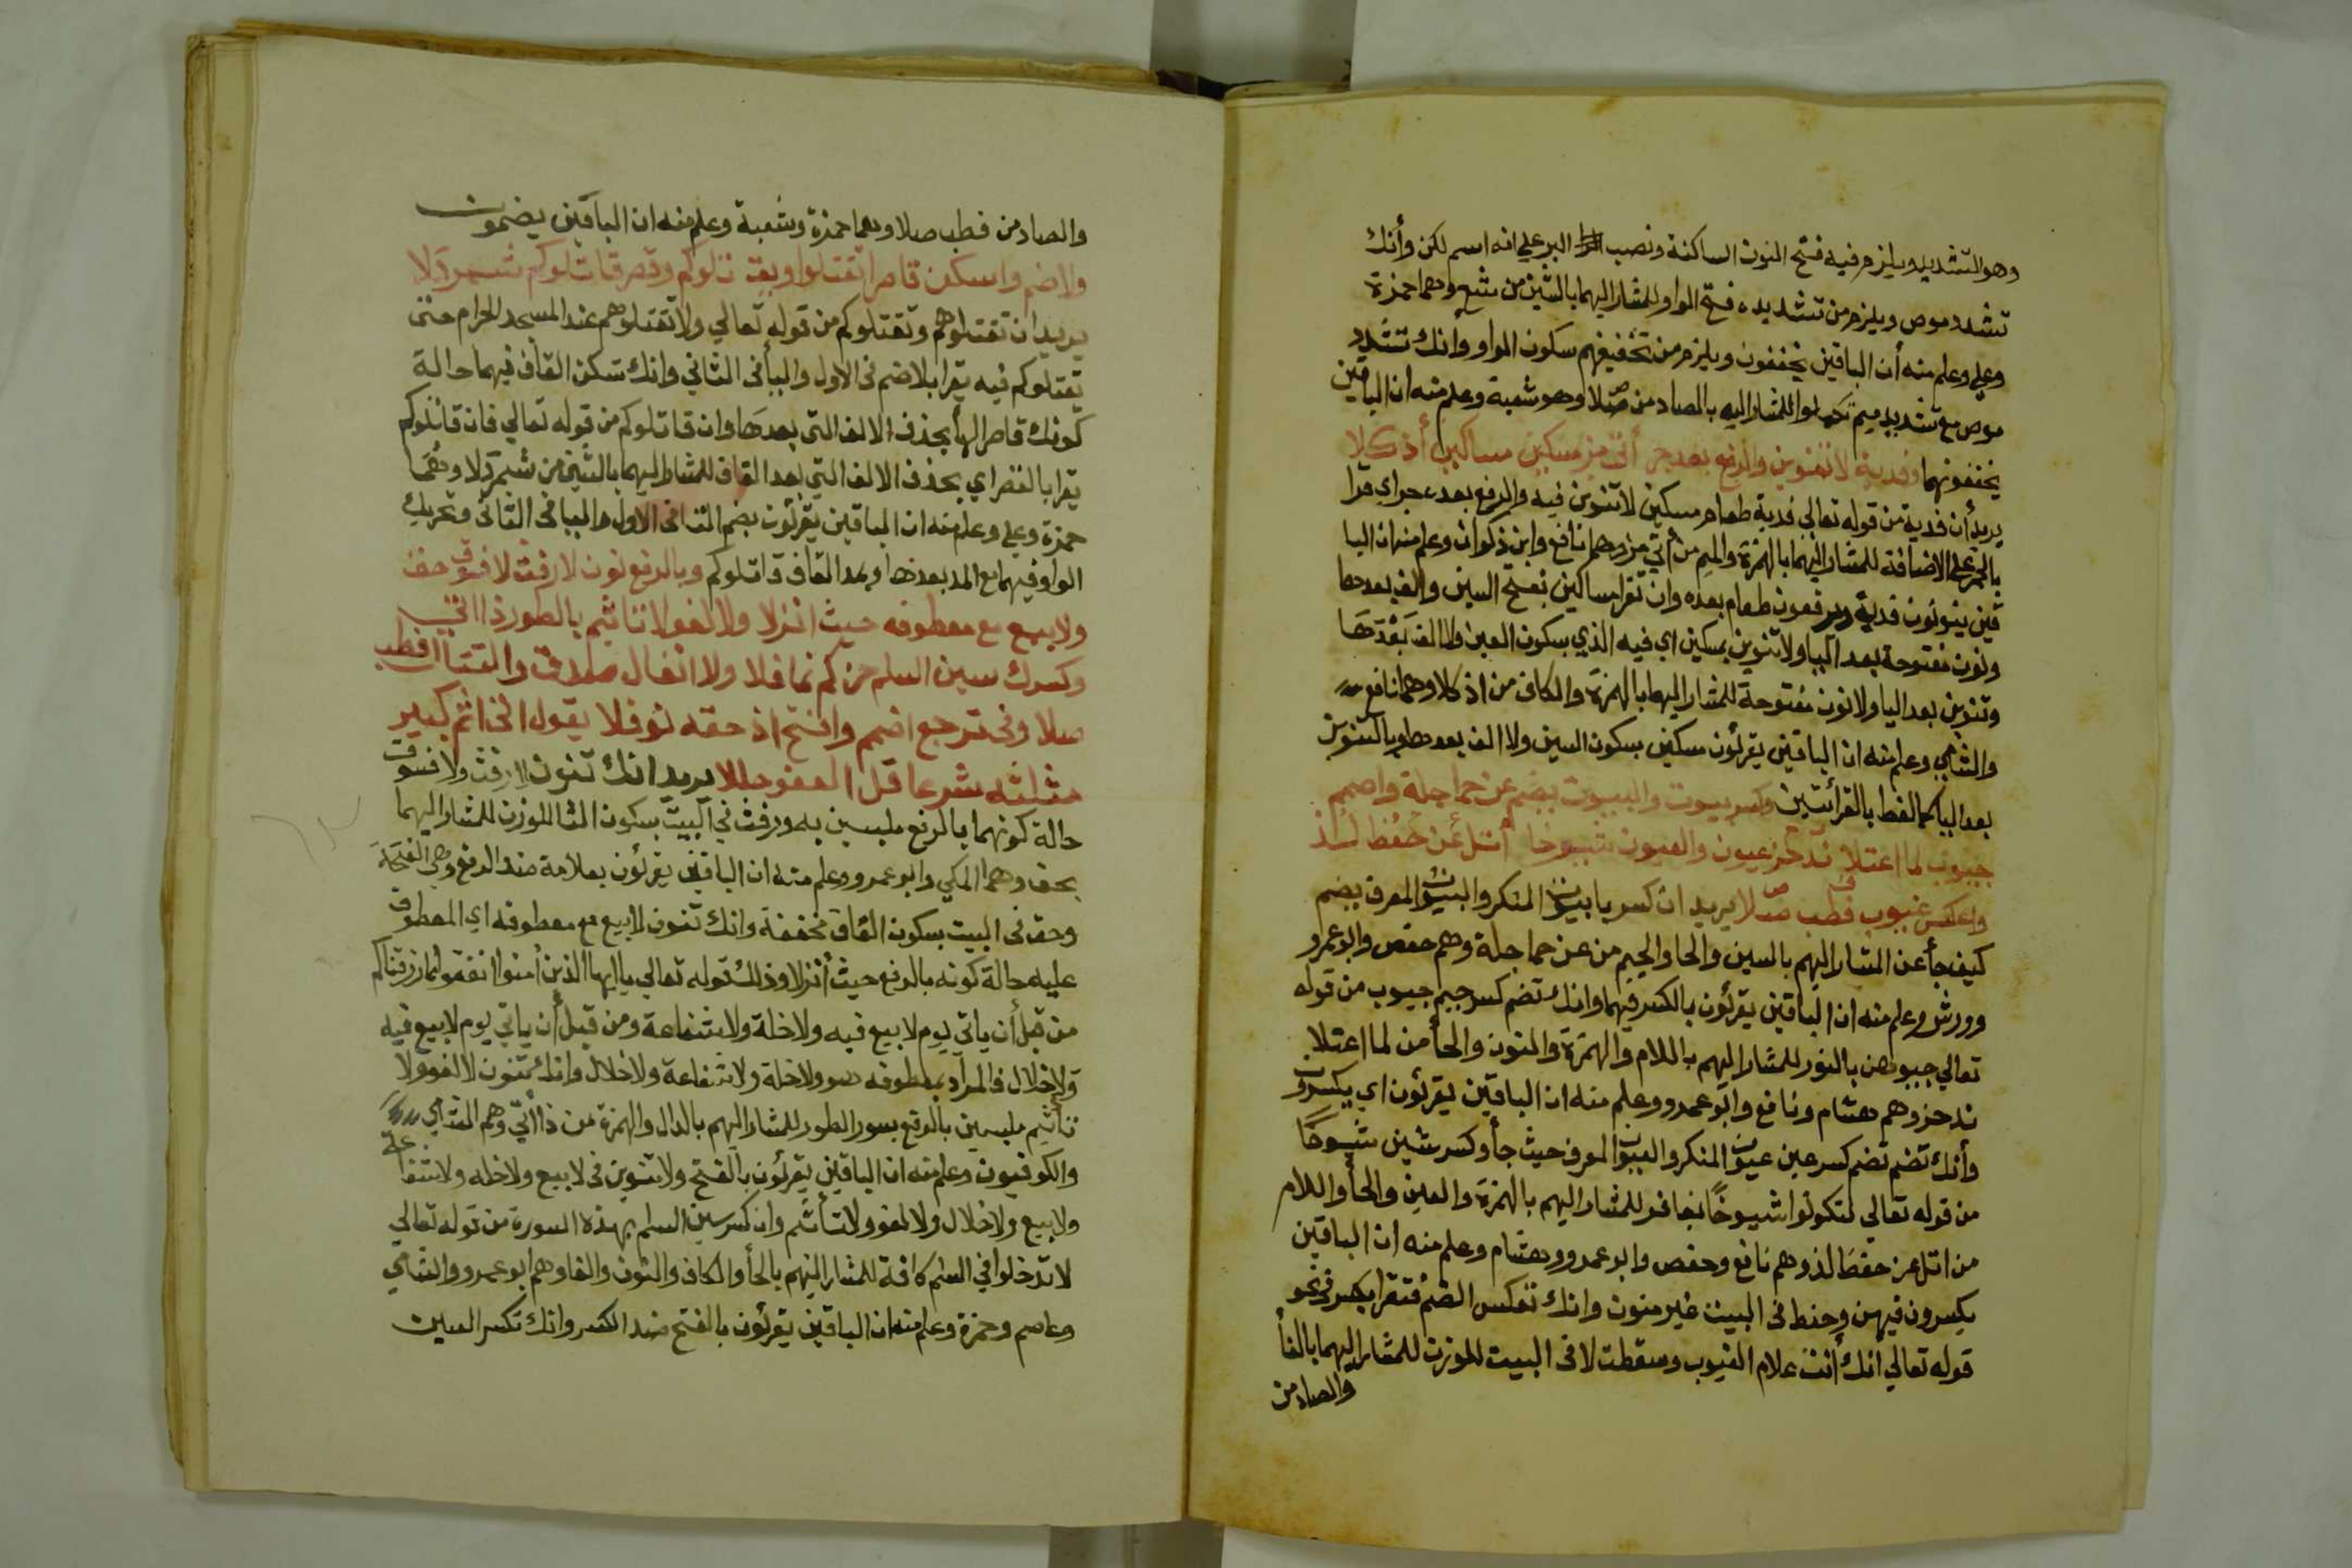 وهو التشديد ويلزم فيه فتح النون الساكنة ونصب البر علي انه اسم لكن وأنك
تشدد موص ويلزم من تشديده فتح الواو للمشار اليهما بالشين من شع وهما حمزة
وعلي وعلم منه أن الباقين يخففون ويلزم من تخفيفهم سكون الواو وانك تشدد
موص مع تشديد ميم تكملوا للمشار اليه بالصاد من صلا وهو شعبة وعلم منه ان الباقين
يخففونهما وفدية لا تنوين والرفع بعد جر أتى من مسكين مساكين أذ كلا
يريد أن فدية من قوله تعالي فدية طعام مسكين لا تنوين فيه والرفع بعده جر اي قرا
بالجر علي الاضافة للمشار اليهما بالهمزة والميم من أتي من وهما نافع وابن ذكوان وعلم منه ان البا
قين ينونون فدية ويرفعون طعام بعده وان تقرا مساكين بفتح السين والف بعدها
ونون مفتوحة بعد اليا ولا تنوين بمسكين اي فيه الذي بسكون العين ولا الف بعدها
وتنوين بعد اليا ولا نون مفتوحة للمشار اليهما بالهمزة والكاف من اذ كلا وهما نافع
والشامي وعلم منه ان الباقين يقرئون مسكين بسكون السين ولا الف بعدها وبالتنوين
بعد اليا كما لفظ بالقرائتين وكسر بيوت والبيوت بضم عن حما جلة واضمم
جيوب لما اعتلا ند حز عيون والعيون شيوخا أتل عن حفظ لذ
واعكس غيوب فطب صلا يريد ان كسر با بيوت المنكر والبيوت المعرف بضم
كيف جأ عن المشار اليهم بالسين والحا والجيم من عن حما جلة وهم حفص وابو عمرو
وورش وعلم منه ان الباقين يقرئون بالكسر فيهما وانك تضم كسر جيم جيوب من قوله
تعالي جيوبهن بالنور للمشار اليهم باللام والهمزة والنون والحأ من لما اعتلا
ند حز وهم هشام ونافع وابو عمرو وعلم منه ان الباقين يقرئون اي يكسرون
وأنك تضم تضم كسر عين عيون المنكر والعيون المعرف حيث جأ وكسر شين شيوخا
من قوله تعالي لتكونوا شيوخا بغافر للمشار اليهم بالهمزة والعين والحأ واللام
من اتل عن حفظ لذ وهم نافع وحفص وابو عمرو وهشام وعلم منه ان الباقين
يكسرون فيهن وحفظ في البيت غير منون وانك تعكس الضم فتقرا بكسر في نحو
قوله تعالي انك أنت علام الغيوب وسقطت لا في البيت للوزن للمشار اليهما بالفأ
والصاد من
والصاد من فطب صلا وهما حمزة وشعبة وعلم منه ان الباقين يضمون
ولا ضم واسكن قاصرا تقتلوا ويقتلوكم وقصر قاتلوكم شمردلا
يريد ان تقتلوهم وتقتلوكم من قوله تعالي ولا تقتلوهم عند المسجد الحرام حتى
تقتلوكم فيه يقرا بلا ضم في الاول واليأ في الثاني وانك تسكن القاف فيهما حالة
كونك قاصرا لهأ بحذف الالف التي بعدها وان قاتلوكم من قوله تعالي فان قاتلوكم
يقرا بالقصر اي بحذف الالف التي بعد القاف للمشار اليهما بالشين من شمردلا وهما
حمزة وعلي وعلم منه ان الباقين يقرئون بضم التا في الاول واليا في الثاني وتحريك
الواو فيهما مع المد بعدها وبمد القاف قاتلوكم وبالرفع نون لا رفث لا فسوق حف
ولا بيع مع معطوفه حيث انزلا ولا لغو لا تاثيم بالطور ذا اتى
وكسرك سين السلم حز كم نما فلا ولا انفال صلدق والقتا فطب
صلا وفي ترجع اضمم وافتح اذ حقه نوفلا يقول اتى اثم كبير
مثلثه شرعا قل العفو حلا يريد انك تنون لا رفث ولا فسوق
حالة كونهما بالرفع ملبسين به ورفث في البيت بسكون الثا للوزن للمشار اليهما
بحف وهما المكي وابو عمرو وعلم منه ان الباقين يقرئون بعلامة ضد الرفع وهي الفتحة
وحف في البيت بسكون القاف مخففة وانك تنون لا بيع مع معطوفه اي المعطوف
عليه حالة كونه بالرفع حيث أنزلا وذلك قوله تعالي يا ايها الذين أمنوا انفقوا مما رزقناكم
من قبل أن ياتي يوم لا بيع فيه ولا خلة ولا شفاعة ومن قبل أن ياتي يوم لا بيع فيه
ولا خلال فالمراد بمعطوفه هو ولا خلة ولا شفاعة ولا خلال وانك تنون لا لغو ولا
تأثيم ملبسين بالرفع بسور الطور للمشار اليهم بالدال والهمزة من ذا أتي وهم الشامي
والكوفيون وعلم منه ان الباقين يقرئون بالفتح ولا تنوين في لا بيع ولا خله ولا شفاعة
ولا بيع ولا خلال ولا لغو ولا تأثيم وان كسر سين السلم بهذه السورة من قوله تعالي
لا تدخلوا في السلم كافة للمشار اليهم بالحأ والكاف والنون والفا وهم ابو عمرو والشامي
وعاصم وحمزة وعلم منه ان الباقين يقرئون بالفتح ضد الكسر وانك تكسر السين